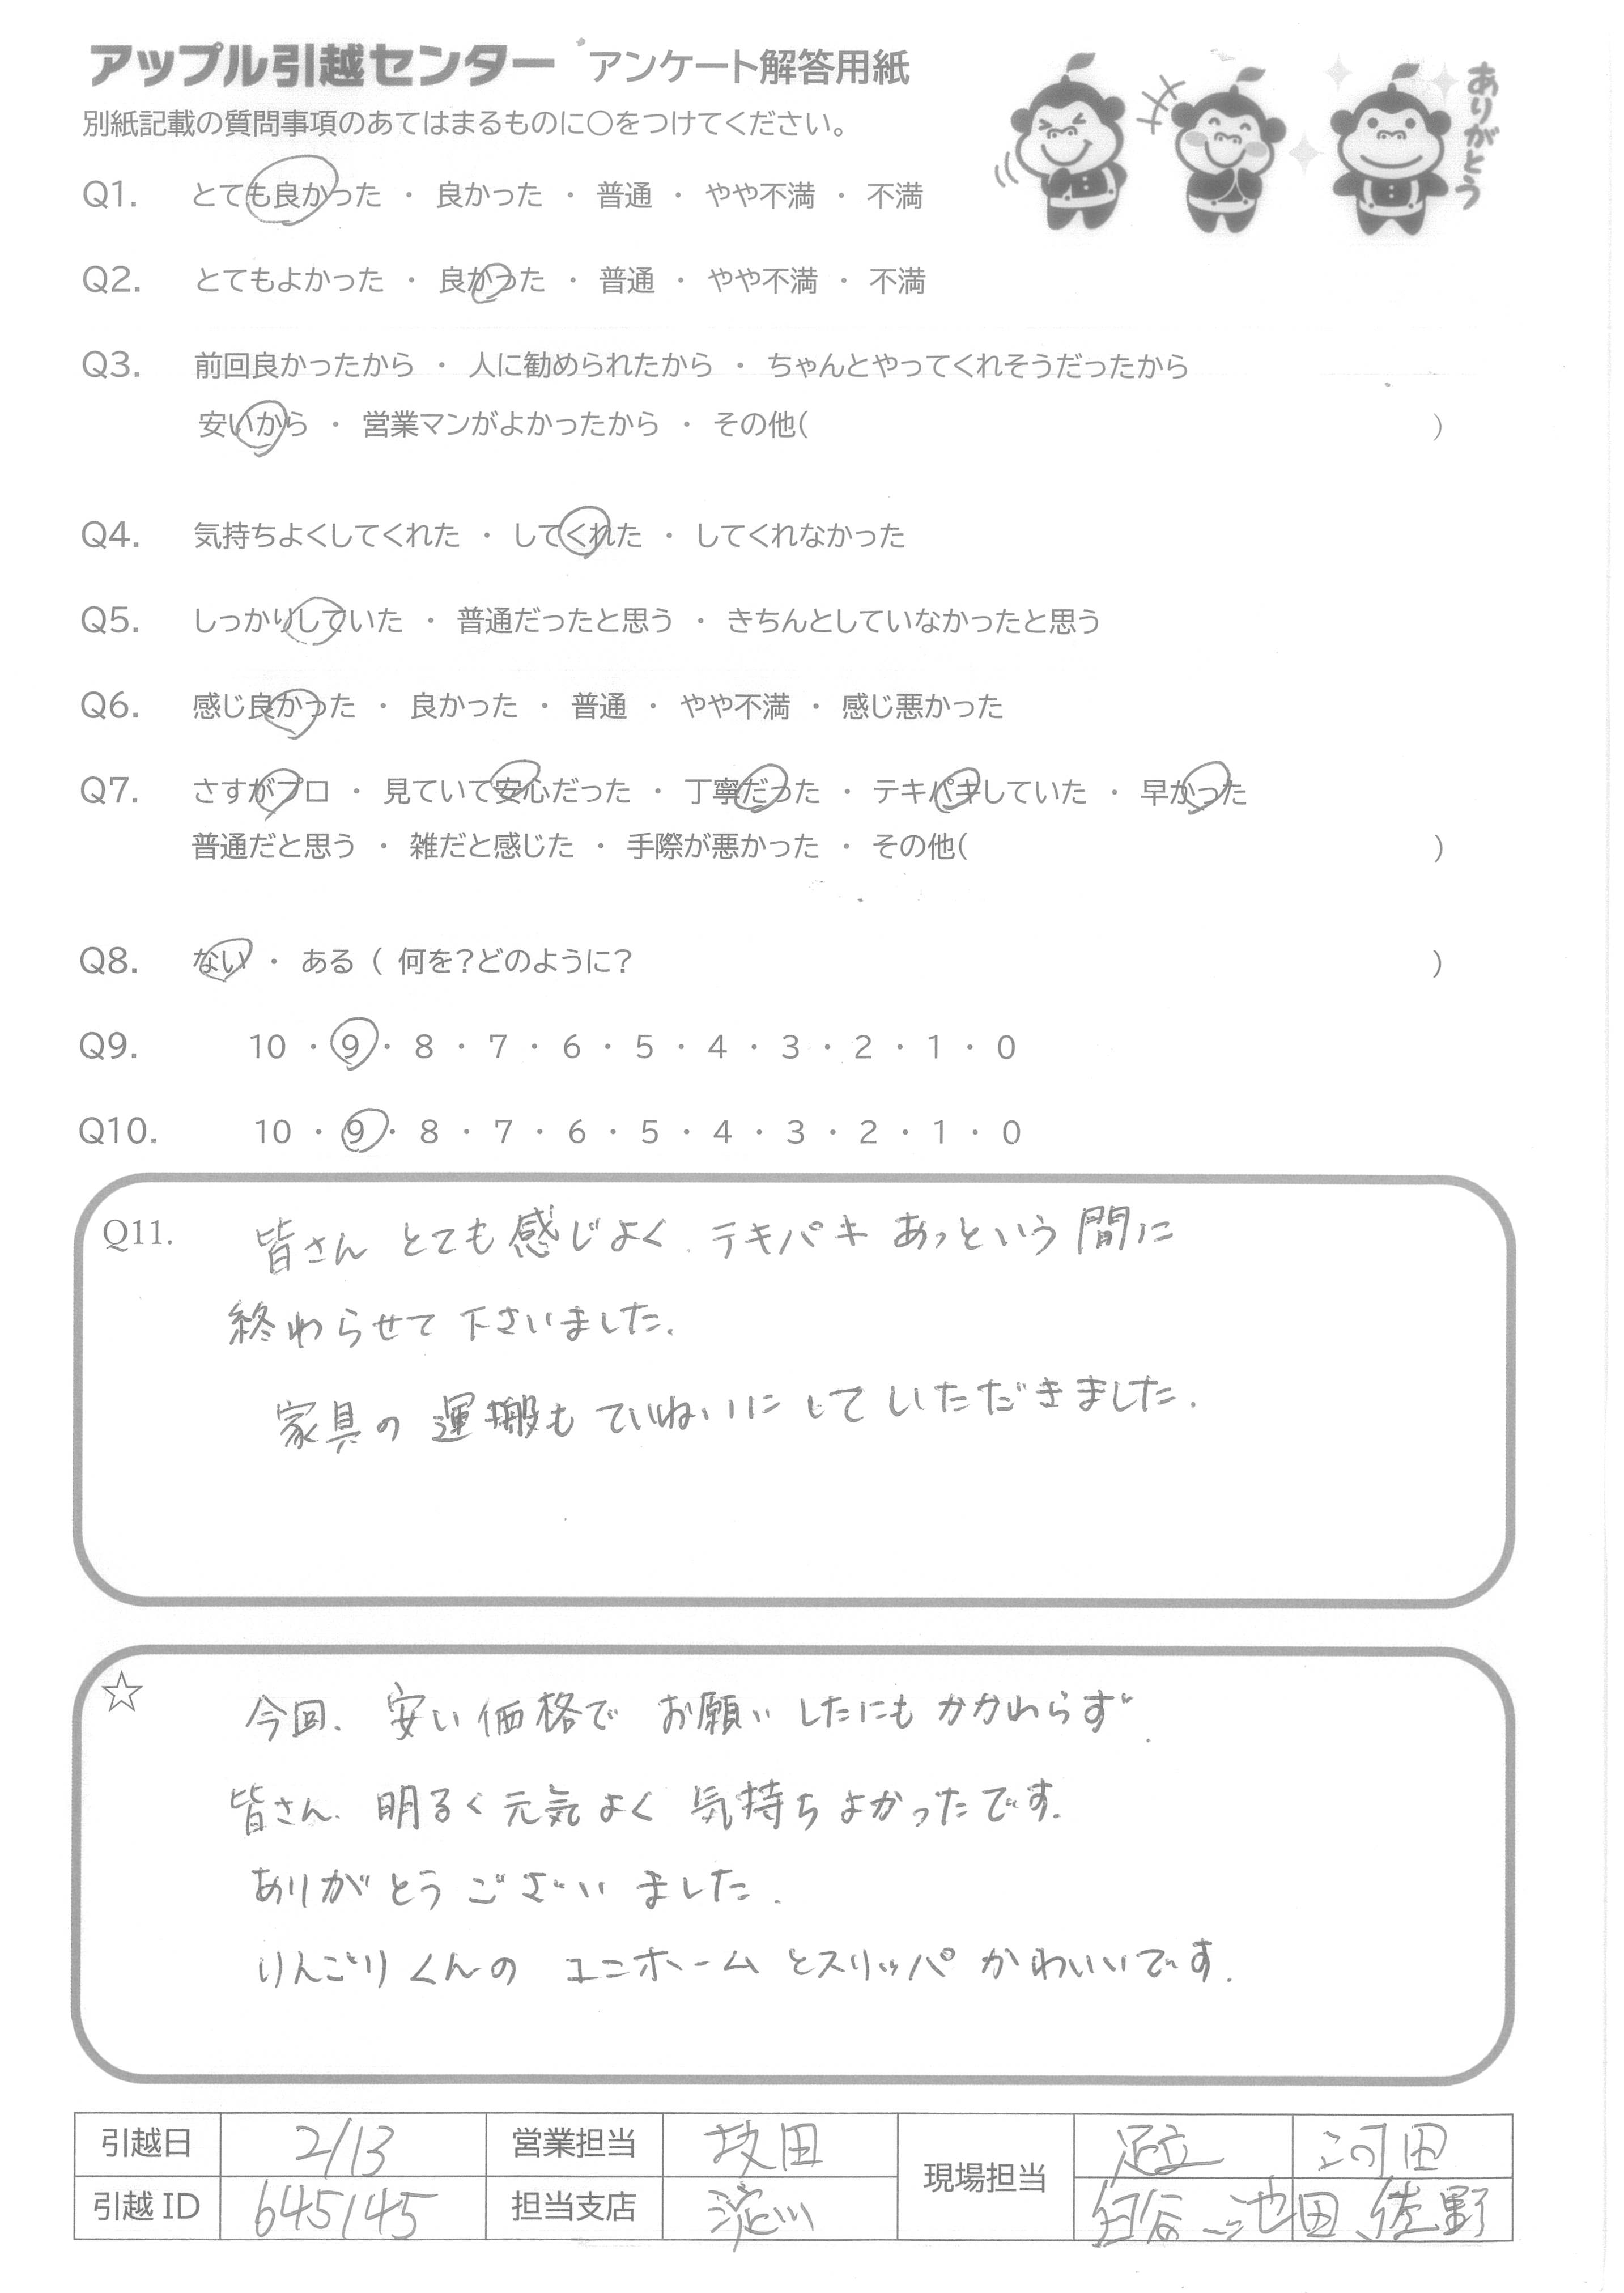 アップル引越センター アンケート解答用紙
ありがとう
別紙記載の質問事項のあてはまるものに○をつけてください。
Q1. とても良かった ・ 良かった ・ 普通 ・ やや不満 ・ 不満
Q2. とてもよかった ・ 良かった ・ 普通 ・ やや不満 ・ 不満
Q3. 前回良かったから ・ 人に勧められたから ・ ちゃんとやってくれそうだったから
安いから ・ 営業マンがよかったから ・ その他( )
Q4. 気持ちよくしてくれた ・ してくれた ・ してくれなかった
Q5. しっかりしていた ・ 普通だったと思う ・ きちんとしていなかったと思う
Q6. 感じ良かった ・ 良かった ・ 普通 ・ やや不満 ・ 感じ悪かった
Q7. さすがプロ ・ 見ていて安心だった ・ 丁寧だった ・ テキパキしていた ・ 早かった
普通だと思う ・ 雑だと感じた ・ 手際が悪かった ・ その他( )
Q8. ない ・ ある ( 何を?どのように? )
Q9. 10 ・ 9 ・ 8 ・ 7 ・ 6 ・ 5 ・ 4 ・ 3 ・ 2 ・ 1 ・ 0
Q10. 10 ・ 9 ・ 8 ・ 7 ・ 6 ・ 5 ・ 4 ・ 3 ・ 2 ・ 1 ・ 0
Q11. 皆さん とても感じよく、テキパキ あっという間に
終わらせて下さいました。
家具の運搬もていねいにしていただきました。
☆ 今回、安い価格で お願いしたにもかかわらず、
皆さん、明るく元気よく 気持ちよかったです。
ありがとうございました。
りんごりくんの ユニホームとスリッパ かわいいです。
引越日 2/13 営業担当 枝田 現場担当 足立 河田
引越 ID 645145 担当支店 淀川 池田 佐野